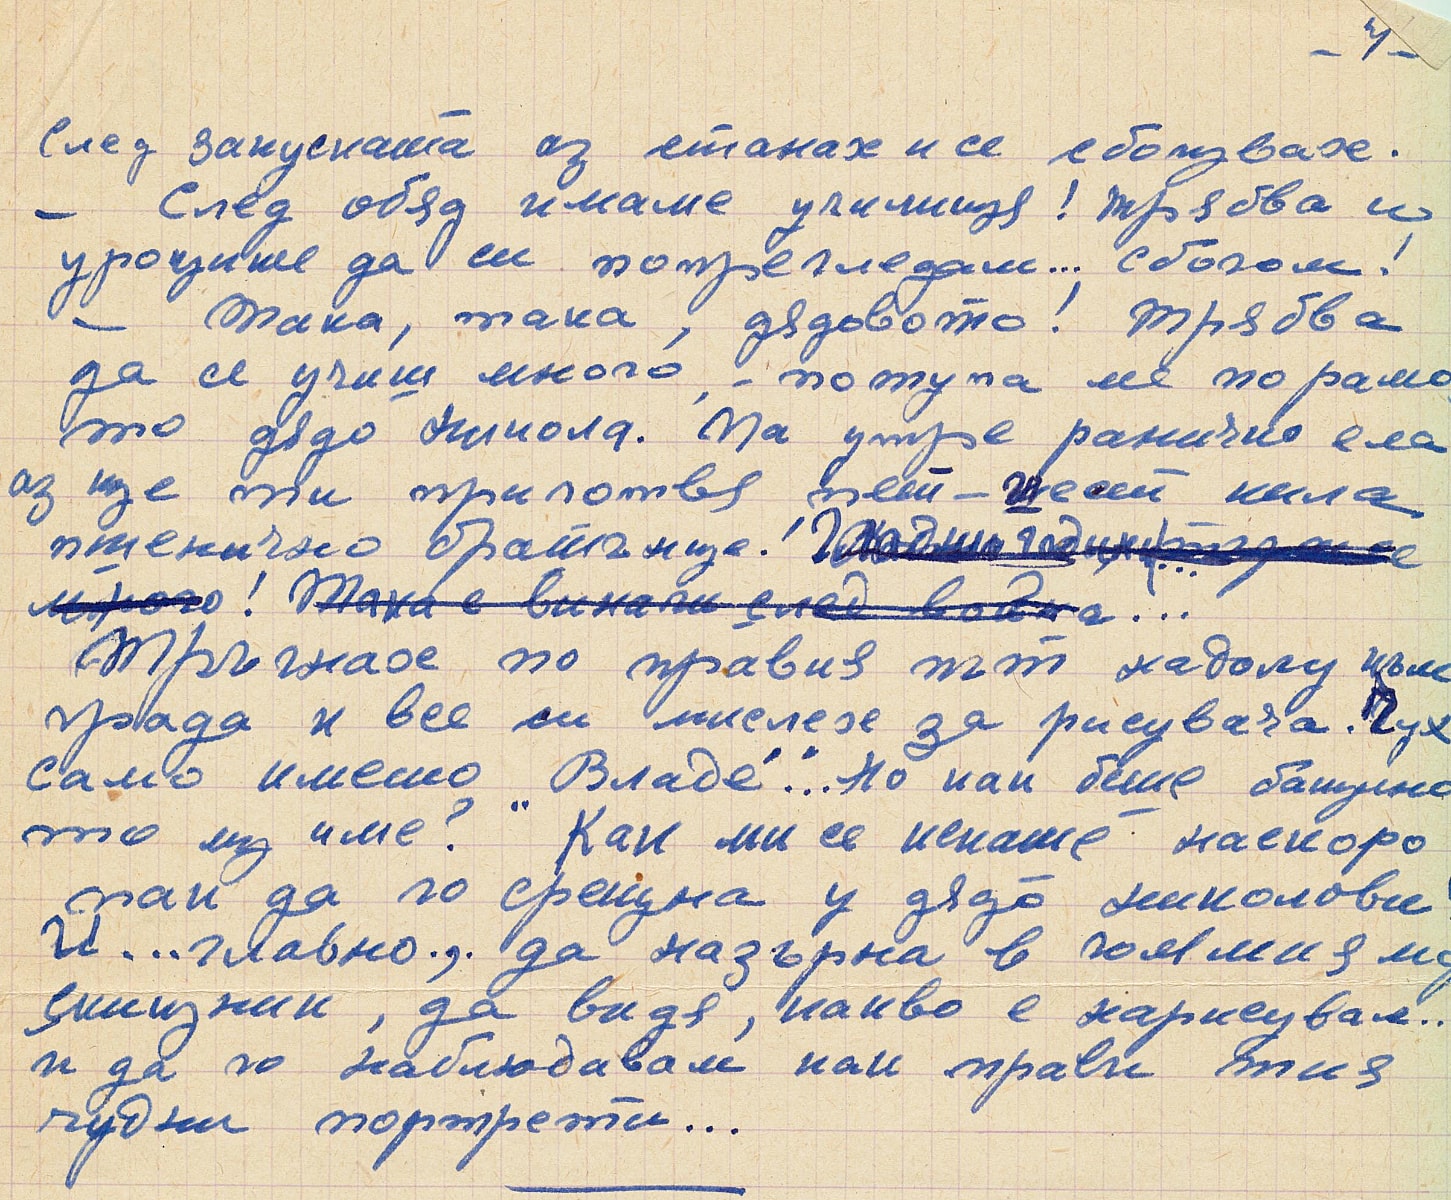 - 4 -
След закуската аз станах и се сбогувах.
– След обяд имаме училище! Трябва и
уроците да си попрегледам... Сбогом!
– Така, така, дядовото! Трябва
да се учиш много, – потупа ме по рамо
то дядо Никола. Па утре ранично ела
аз ще ти приготвя пет-шест кила
пшенично братче!
много! Така е винаги след война...
Тръгнах по правия път надолу към
града и все си мислех за рисувача. Чух
само името „Владе"... Но как беше бащино
то му име? Как ми се искаше наскоро
пак да го срещна у дядо Николови
И... главно.,. да назърна в големия му
скицник, да видя, какво е нарисувал..
и да го наблюдавам как прави тия
чудни портрети...